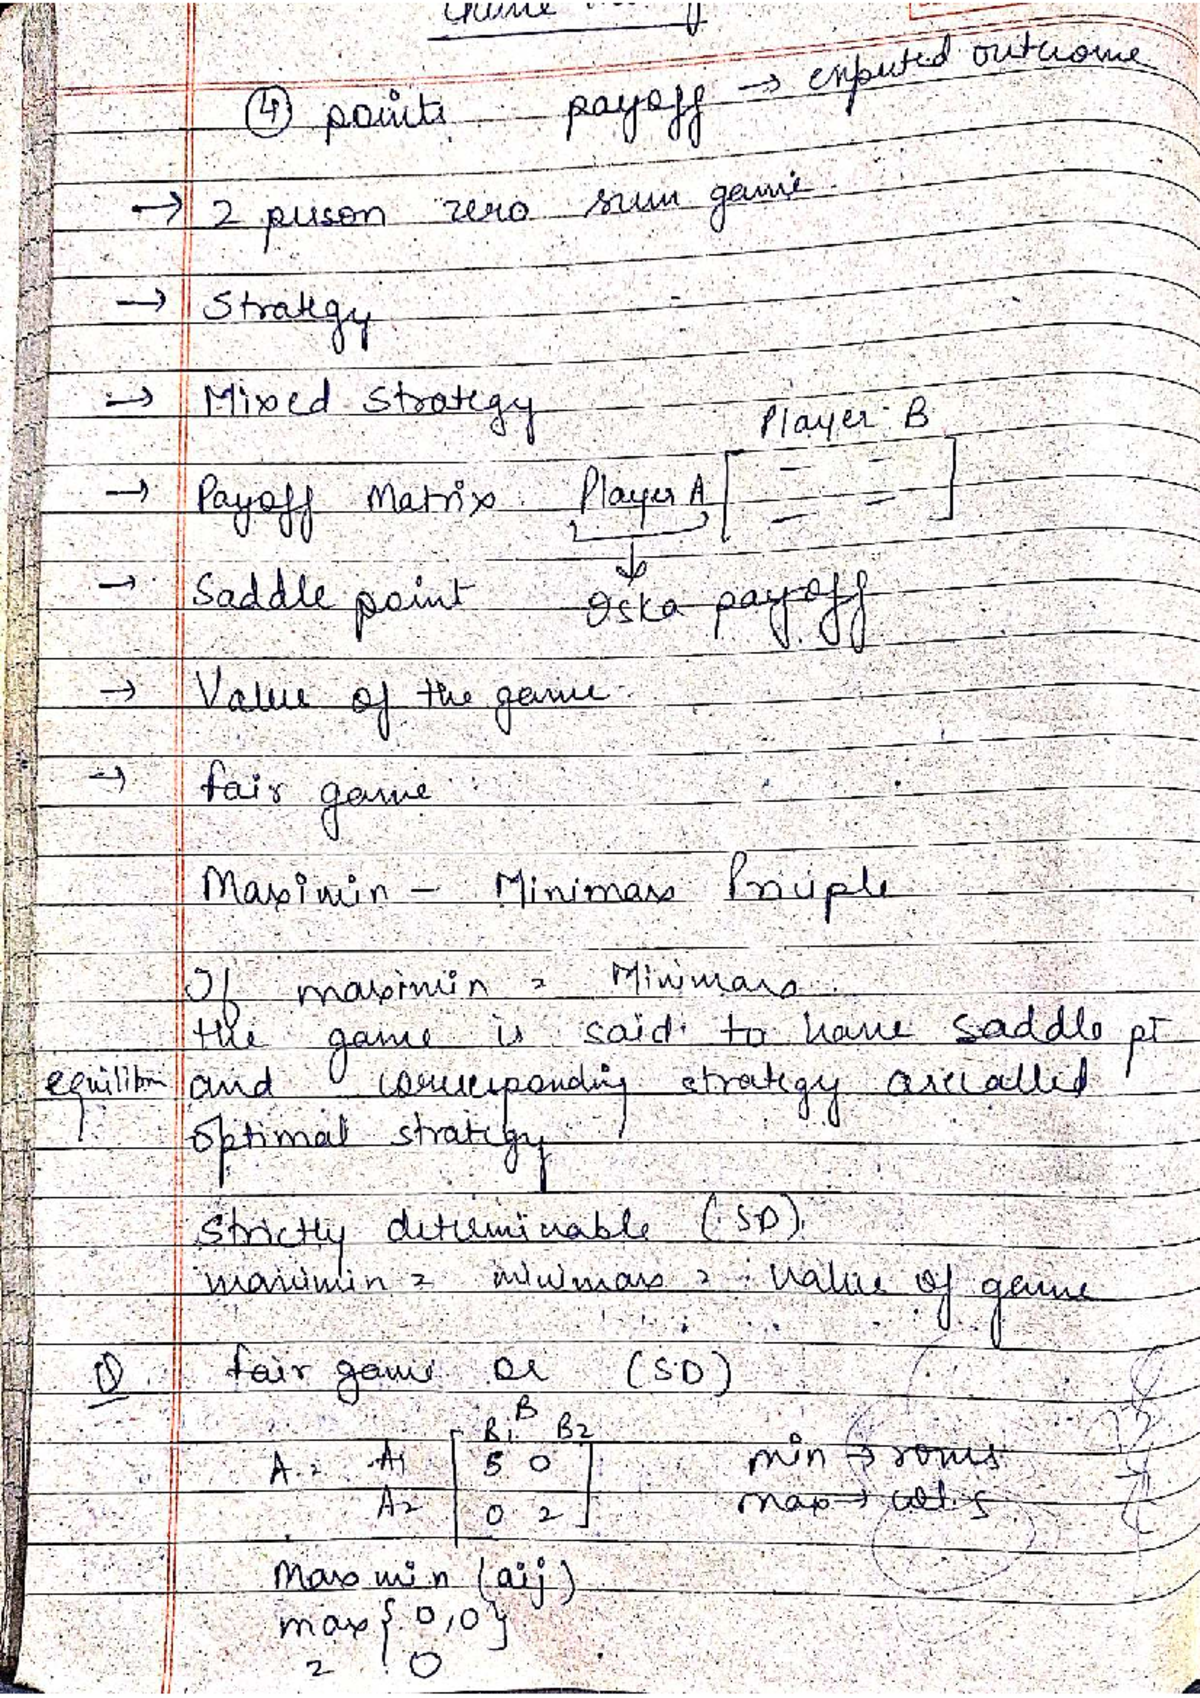 Game Theory
④ points payoff → expected outcome
→ 2 person zero sum game
→ Strategy
→ Mixed Strategy
Player B
→ Payoff Matrix Player A
→ Saddle point Iska payoff
→ Value of the game
→ fair game
Maximin - Minimax Principle
If maximin = Minimax
the game is said to have saddle pt
equilibm and corresponding strategy are called
optimal strategy
Strictly determinable (SD)
maximin = minimax = value of game
① fair game or (SD)
B
B1 B2
A = A1 5 0 min → rows
A2 0 2 max → cols
Max min (aij)
max {0,0}
= 0